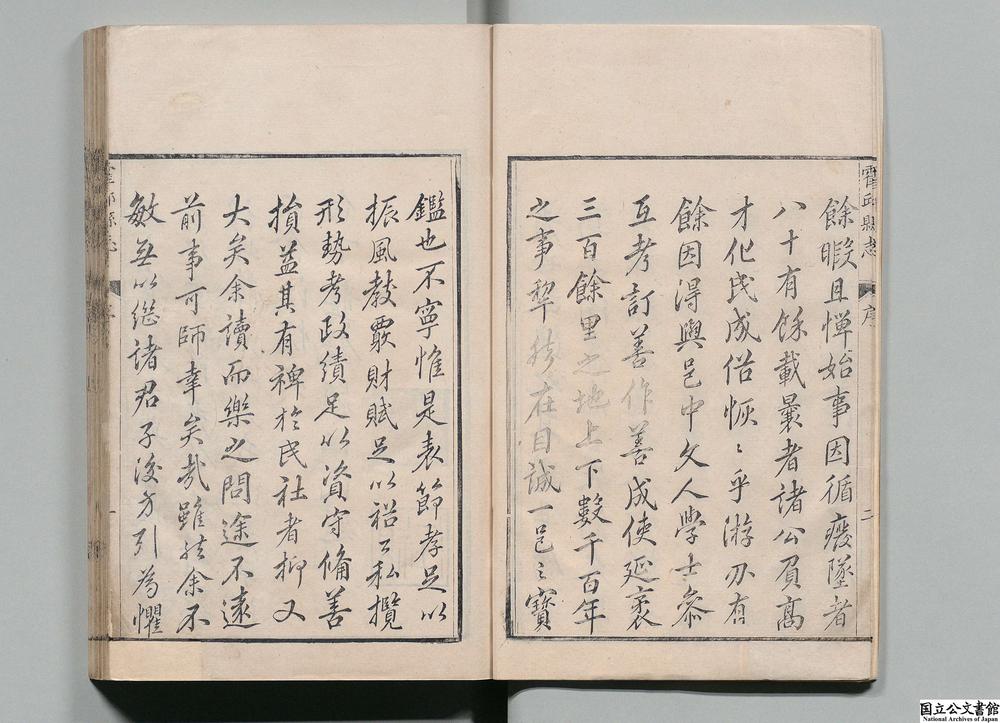 霍邱縣志 序 二
餘暇且憚始事因循癈墜者
八十有餘載曩者諸公負高
才化民成俗恢〻乎游刃有
餘因得與邑中文人學士叅
互考訂善作善成使延袤
三百餘里之地上下數千百年
之事犂然在目誠一邑之寳
鑑也不寧惟是表節孝足以
振風教覈財賦足以裕公私攬
形勢考政績足以資守備善
損益其有裨於民社者抑又
大矣余讀而樂之問途不遠
前事可師幸矣哉雖然余不
敏無以继諸君子後方引為懼
国立公文書館
National Archives of Japan